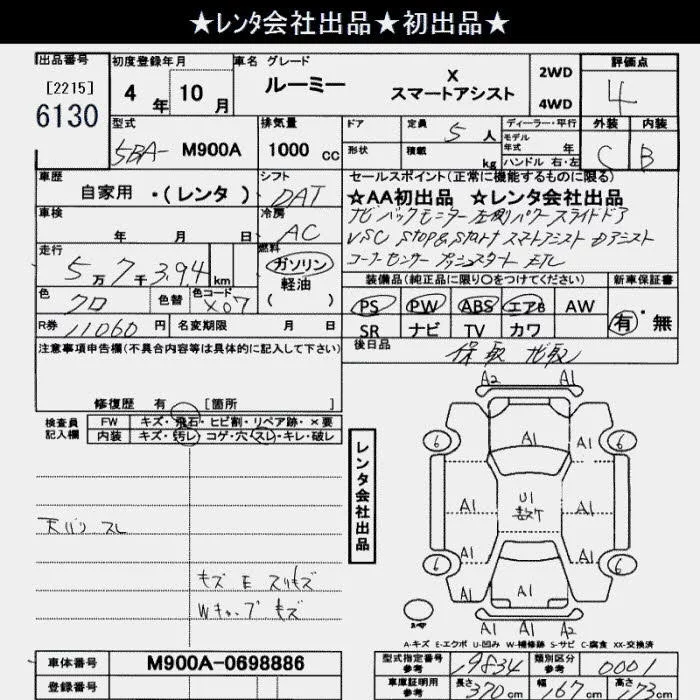 ★レンタ会社出品★初出品★
出品番号 初度登録年月 車名 グレード 評価点
[2215] 4年 10月 ルーミー X スマートアシスト 2WD 4WD 4
6130
型式 排気量 ドア 定員 5人 ディーラー・平行 外装 内装
5BA- M900A 1000cc 形状 積載 kg モデル年式 年 ハンドル 右・左 C B
車歴 シフト セールスポイント(正常に機能するものに限る)
自家用 ・(レンタ) DAT ☆AA初出品 ☆レンタ会社出品
車検 年 月 日 冷房 AC ナビ バックモニター 左側パワースライドドア
VSC Stop&Start スマートアシスト
走行 5万7千394km 燃料 ガソリン 軽油 ( ) コーナーセンサー プッシュスタート ETC
色 クロ 色替 色コード X07 装備品(純正品に限り○をつけてください) 新車保証書
PS PW ABS エアB AW 有・無
SR ナビ TV カワ
R券 11060円 名変期限 月 日 後日品 保 取 ナビ取
注意事項申告欄(不具合内容等は具体的に記入して下さい)
修復歴 有 [箇所 ]
検査員記入欄 FW キズ・飛石・ヒビ割・リペア跡・×要
内装 キズ・汚レ・コゲ・穴・スレ・キレ・破レ
レンタ会社出品
A2 A1
6 A1 6
A1 A1
A1 U1 A1
A1 A1
6 A1 6
A1 A1 A2
天バリ スレ
キズ E スリキズ
Wキャップ キズ
A-キズ E-エクボ U-凹み W-補修跡 S-サビ C-腐食 XX-交換済
車体番号 M900A-0698886 型式指定番号 参考 19834 類別区分 参考 0001
登録番号 車庫証明用 参考 長さ 370cm 幅 167cm 高さ 173cm